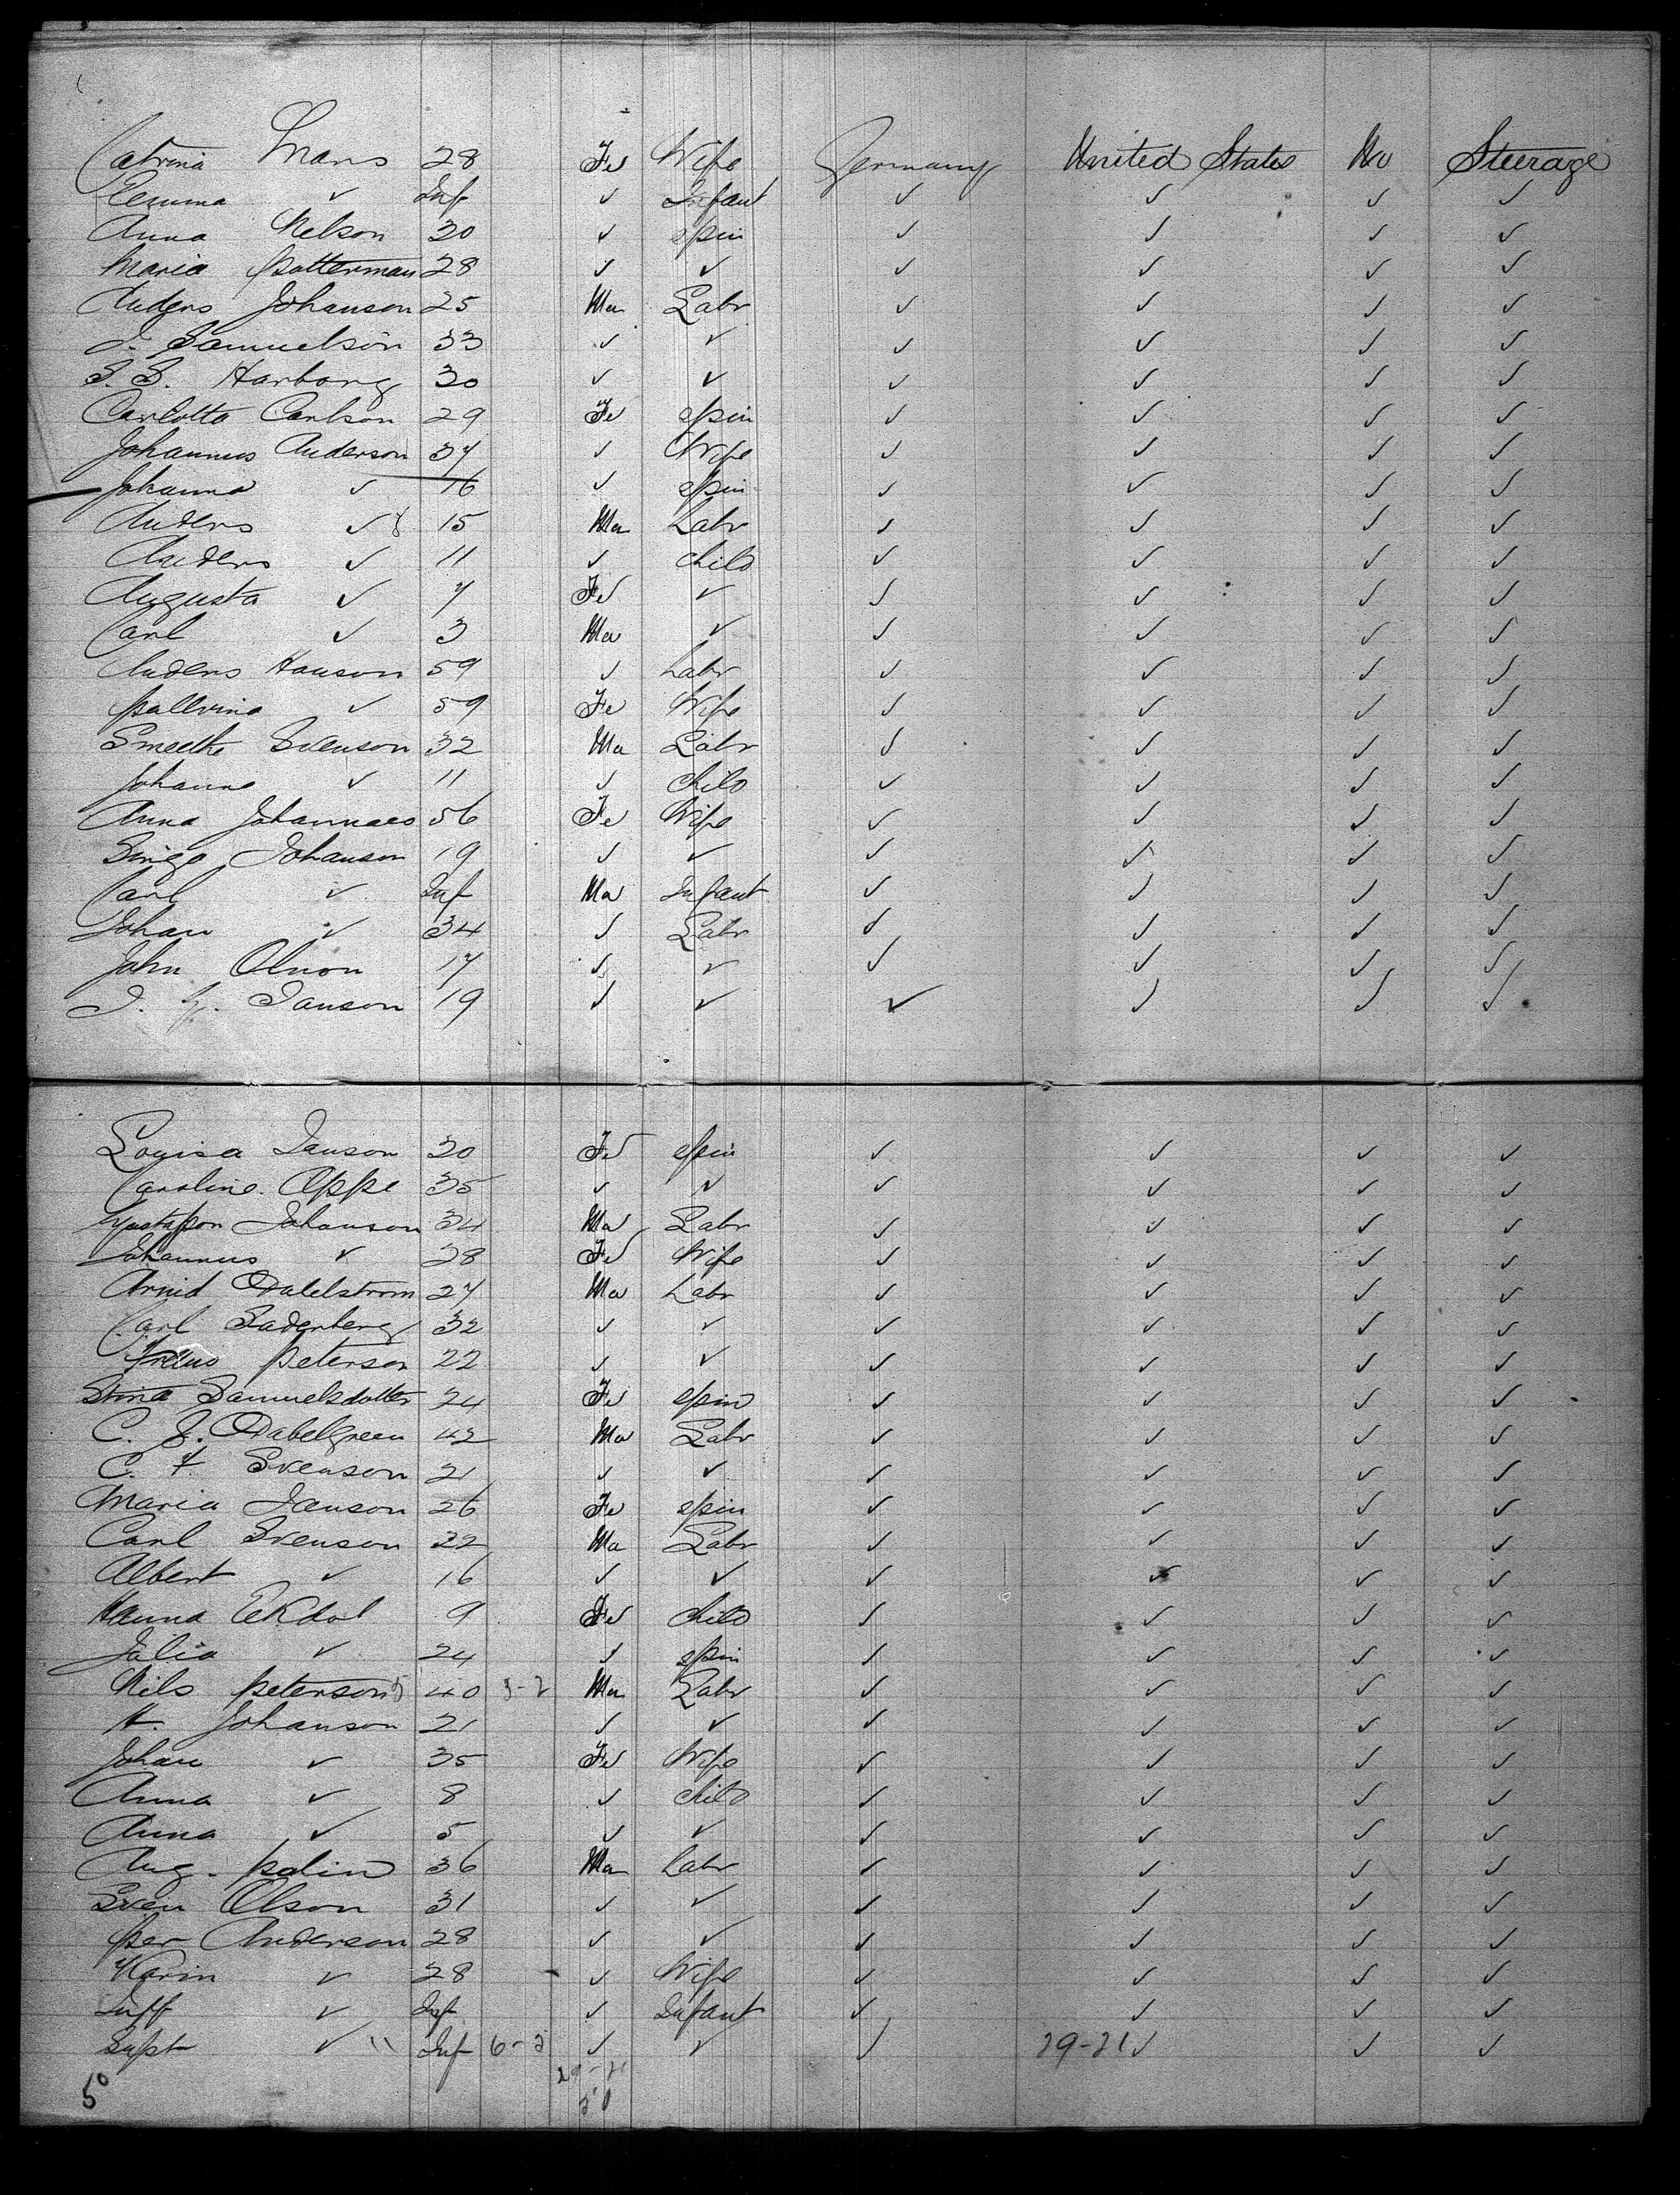 Catrina Mans 28 Fe Wife Germany United States No Steerage
Emma ✓ Inf ✓ Infant ✓ ✓ ✓ ✓
Anna Nelson 30 ✓ spin ✓ ✓ ✓ ✓
Maria 28 ✓ ✓ ✓ ✓ ✓ ✓
Anders Johanson 25 Ma Labr ✓ ✓ ✓ ✓
Samuelson 33 ✓ ✓ ✓ ✓ ✓ ✓
Harborg 30 ✓ ✓ ✓ ✓ ✓ ✓
Carlotta Carlson 29 Fe spin ✓ ✓ ✓ ✓
Johannus Anderson 37 ✓ Wife ✓ ✓ ✓ ✓
Johanna ✓ 16 ✓ spin ✓ ✓ ✓ ✓
Anders ✓ 15 Ma Labr ✓ ✓ ✓ ✓
Anders ✓ 11 ✓ child ✓ ✓ ✓ ✓
Augusta ✓ 7 Fe ✓ ✓ ✓ ✓ ✓
Carl ✓ 3 Ma ✓ ✓ ✓ ✓ ✓
Anders Hanson 59 ✓ Labr ✓ ✓ ✓ ✓
✓ 59 Fe Wife ✓ ✓ ✓ ✓
Svenson 32 Ma Labr ✓ ✓ ✓ ✓
Johanna ✓ 11 ✓ child ✓ ✓ ✓ ✓
Anna Johannaes 56 Fe Wife ✓ ✓ ✓ ✓
Johanson 19 ✓ ✓ ✓ ✓ ✓ ✓
Carl ✓ Inf Ma Infant ✓ ✓ ✓ ✓
Johan ✓ 34 ✓ Labr ✓ ✓ ✓ ✓
John 17 ✓ ✓ ✓ ✓ ✓ ✓
Janson 19 ✓ ✓ ✓ ✓ ✓ ✓
Louisa Janson 20 Fe spin ✓ ✓ ✓ ✓
Caroline Oppe 35 ✓ ✓ ✓ ✓ ✓ ✓
Johanson 34 Ma Labr ✓ ✓ ✓ ✓
Johannus ✓ 28 Fe Wife ✓ ✓ ✓ ✓
Arvid Dahlstrom 27 Ma Labr ✓ ✓ ✓ ✓
Carl Saderberg 32 ✓ ✓ ✓ ✓ ✓ ✓
Peterson 22 ✓ ✓ ✓ ✓ ✓ ✓
Stina Samuelsdotter 24 Fe spin ✓ ✓ ✓ ✓
C. J. Dabelgreen 42 Ma Labr ✓ ✓ ✓ ✓
C. F. Svenson 21 ✓ ✓ ✓ ✓ ✓ ✓
Maria Janson 26 Fe spin ✓ ✓ ✓ ✓
Carl Svenson 22 Ma Labr ✓ ✓ ✓ ✓
Albert ✓ 16 ✓ ✓ ✓ ✓ ✓ ✓
Hanna Ekdol 9 Fe child ✓ ✓ ✓ ✓
Julia ✓ 24 ✓ spin ✓ ✓ ✓ ✓
Nils Peterson 40 Ma Labr ✓ ✓ ✓ ✓
A. Johanson 21 ✓ ✓ ✓ ✓ ✓ ✓
Johan ✓ 35 Fe Wife ✓ ✓ ✓ ✓
Anna ✓ 8 ✓ child ✓ ✓ ✓ ✓
Anna ✓ 5 ✓ ✓ ✓ ✓ ✓ ✓
Aug. Polin 36 Ma Labr ✓ ✓ ✓ ✓
Sven Olson 31 ✓ ✓ ✓ ✓ ✓ ✓
Per Anderson 28 ✓ ✓ ✓ ✓ ✓ ✓
Karin ✓ 28 ✓ Wife ✓ ✓ ✓ ✓
✓ Inf ✓ Infant ✓ ✓ ✓ ✓
✓ Inf ✓ ✓ ✓ 29-21 ✓ ✓ ✓
29-21
50 50